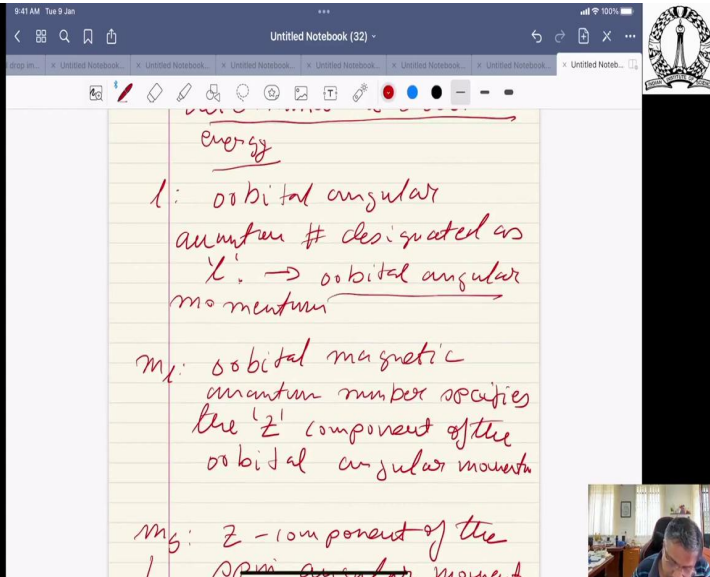 9:41 AM Tue 9 Jan
100%
Untitled Notebook (32)
drop im...
Untitled Notebook...
Untitled Notebook...
Untitled Notebook...
Untitled Notebook...
Untitled Notebook...
Untitled Notebook...
Untitled Noteb...
energy
l: orbital angular
quantum # designated as
'l'. → orbital angular
momentum
ml: orbital magnetic
quantum number specifies
the 'z' component of the
orbital angular momentum
ms: z-component of the
spin angular moment